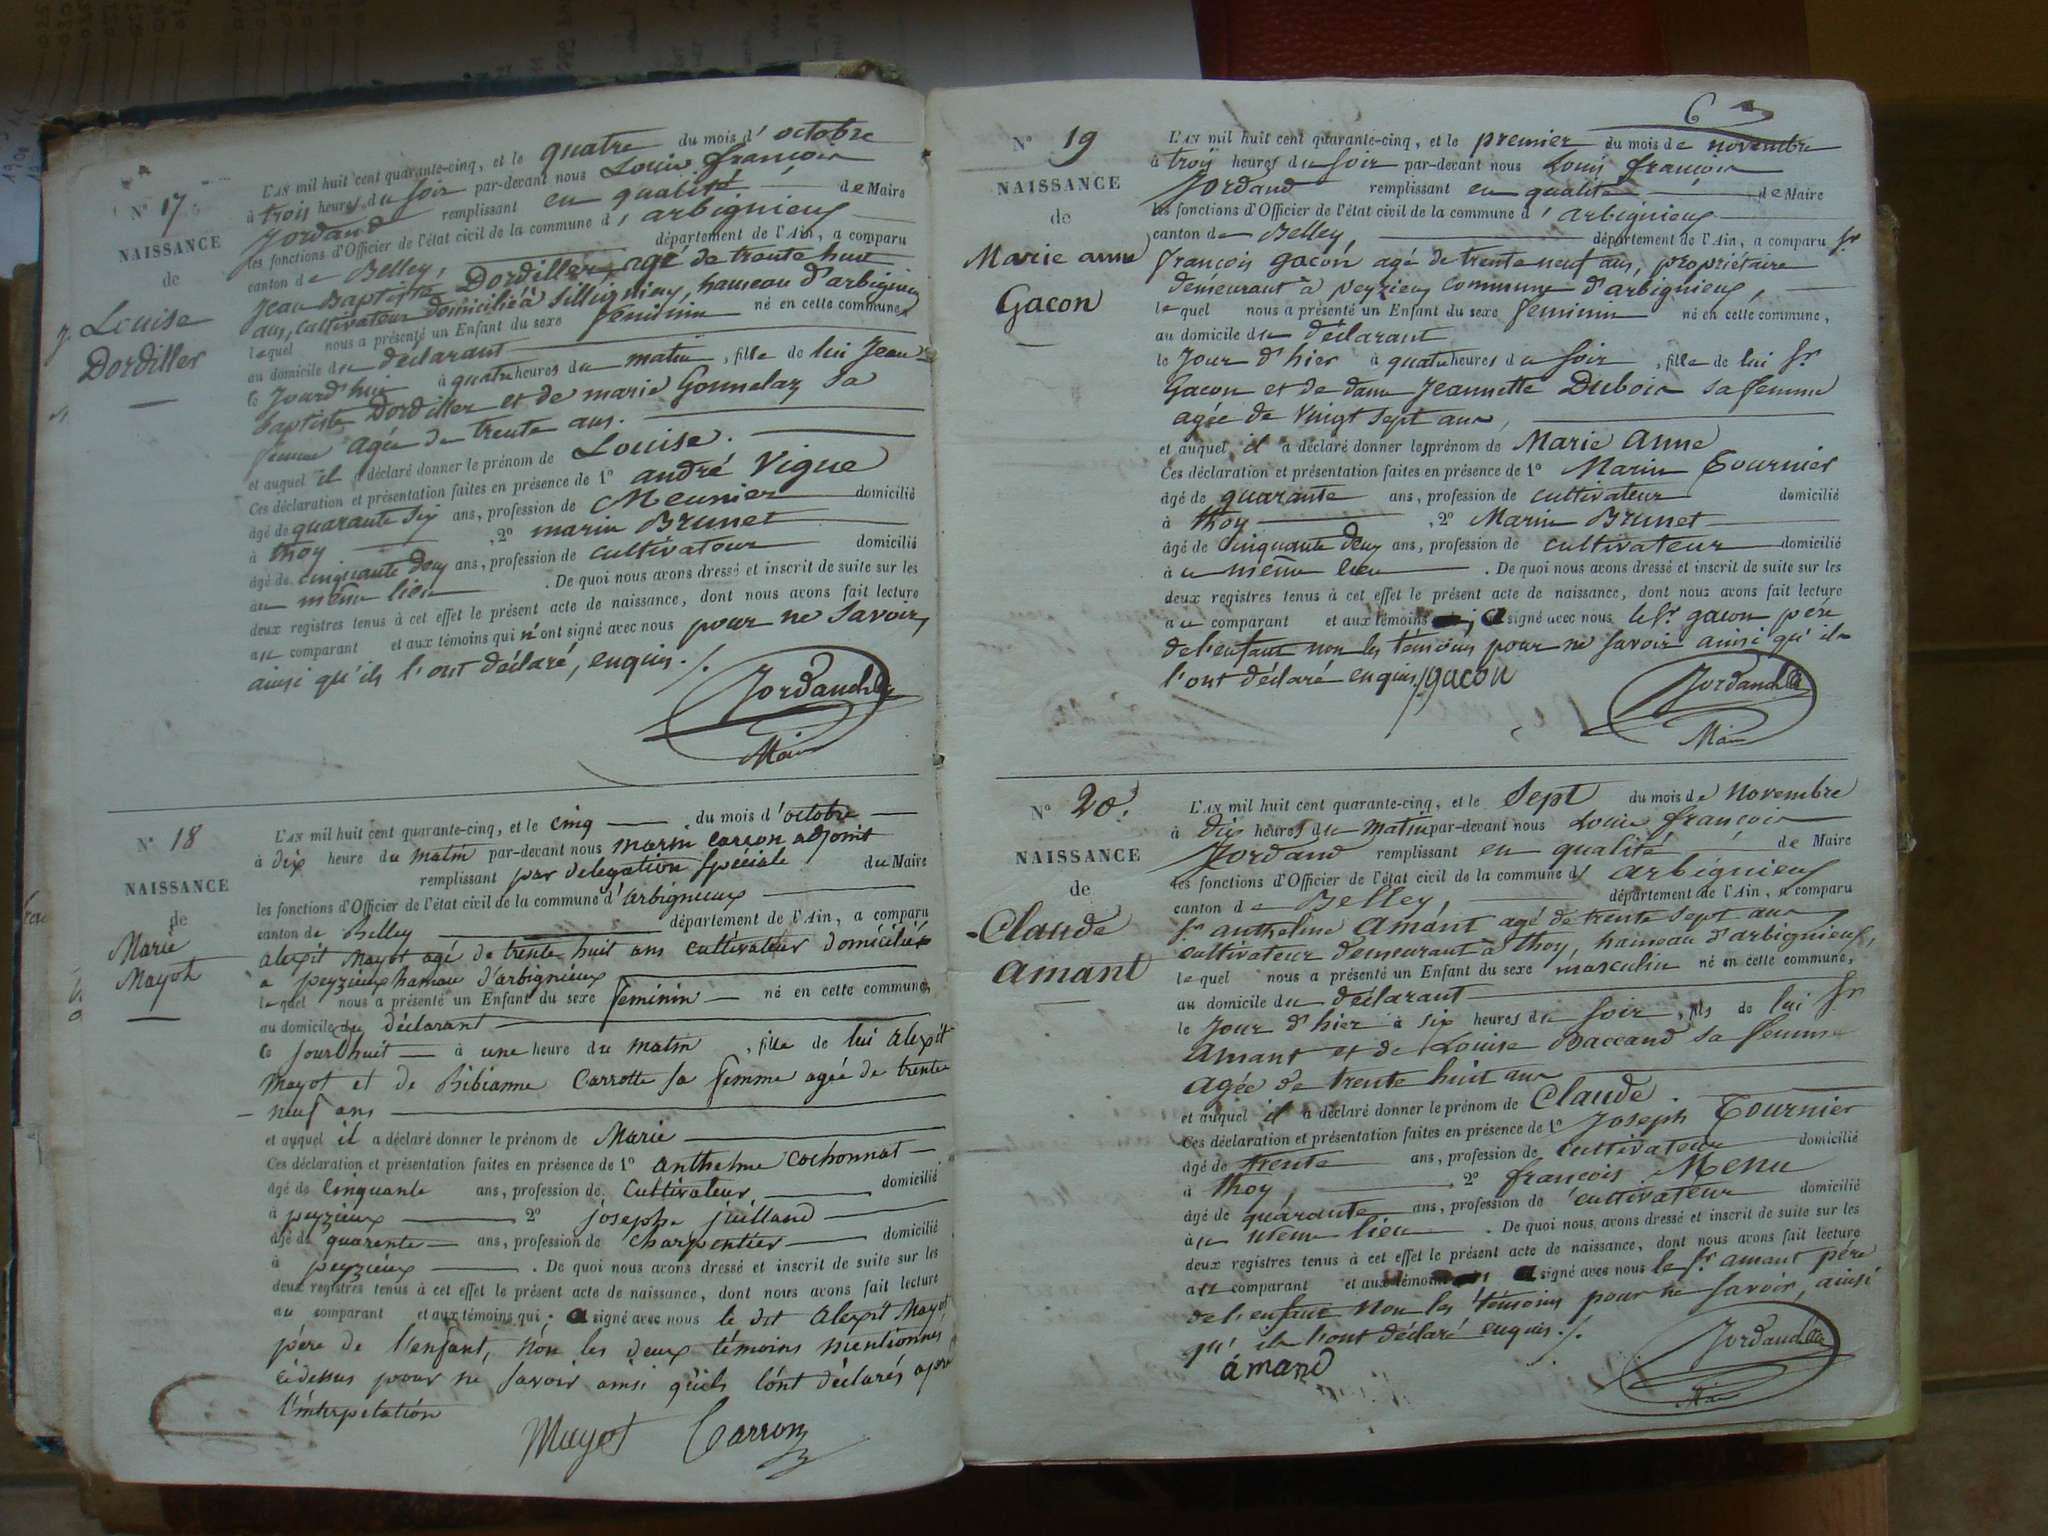 N° 17
NAISSANCE
de
Louise
Dordiller
L'AN mil huit cent quarante-cinq, et le quatre du mois d'octobre
à trois heures du soir par-devant nous Louis françois
Jordand remplissant en qualité de Maire
les fonctions d'Officier de l'état civil de la commune d'arbignieux
canton de Belley, département de l'Ain, a comparu
Jean Baptiste Dordiller, agé de trente huit
ans, cultivateur domicilié à Sillignieu, hameau d'arbignieu
lequel nous a présenté un Enfant du sexe feminin né en cette commune,
au domicile du déclarant
ce Jourd'hui à quatre heures du matin, fille de lui Jean
baptiste Dordiller et de marie Gonnelaz sa
femme agée de trente ans.
et auquel il a déclaré donner le prénom de Louise.
Ces déclaration et présentation faites en présence de 1° andré Vigue
âgé de quarante six ans, profession de Meunier domicilié
à thoy, 2° marin Brunet
âgé de cinquante deux ans, profession de cultivateur domicilié
au même lieu. De quoi nous avons dressé et inscrit de suite sur les
deux registres tenus à cet effet le présent acte de naissance, dont nous avons fait lecture
au comparant et aux témoins qui n'ont signé avec nous pour ne savoir,
ainsi qu'ils l'ont déclaré, enquis ./.
Jordand
Maire
N° 18
NAISSANCE
de
Marie
Mayot
L'AN mil huit cent quarante-cinq, et le cinq du mois d'octobre
à dix heure du matin par-devant nous marin carron adjoint
remplissant par delegation spéciale du Maire
les fonctions d'Officier de l'état civil de la commune d'arbignieux
canton de Belley département de l'Ain, a comparu
alexit Mayot agé de trente huit ans cultivateur domicilié
a peyzieux hamau d'arbignieux
lequel nous a présenté un Enfant du sexe feminin né en cette commune,
au domicile du déclarant
ce jourdhuit à une heure du matin, fille de lui alexit
Mayot et de Bibianne Carrotte sa femme agée de trente
neuf ans
et auquel il a déclaré donner le prénom de Marie
Ces déclaration et présentation faites en présence de 1° anthelme cochonnat
âgé de cinquante ans, profession de cultivateur domicilié
à peyzieux 2° josephe juilland
âgé de quarente ans, profession de charpentier domicilié
à peyzieux. De quoi nous avons dressé et inscrit de suite sur les
deux registres tenus à cet effet le présent acte de naissance, dont nous avons fait lecture
au comparant et aux témoins qui; a signé avec nous le dit alexit Mayot
père de l'enfant, nón les deux témoins mentionnés
cidessus pour ne savoir ainsi qu'ils lónt déclarés apres
l'interpetation
Mayot Carron
6
N° 19
NAISSANCE
de
Marie anne
Gacon
L'AN mil huit cent quarante-cinq, et le premier du mois de novembre
à trois heures du soir par-devant nous Louis françois
Jordand remplissant en qualité de Maire
les fonctions d'Officier de l'état civil de la commune d'arbignieux
canton de Belley département de l'Ain, a comparu Sr
françois gacon agé de trente neuf ans, propriétaire
demeurant à peyzieu commune d'arbignieux,
lequel nous a présenté un Enfant du sexe feminin né en cette commune,
au domicile du déclarant
le Jour d'hier à quatre heures du soir, fille de lui Sr
Gacon et de dame Jeannette Dubois sa femme
agée de vingt sept ans,
et auquel il a déclaré donner les prénom de Marie Anne
Ces déclaration et présentation faites en présence de 1° Marin Tournier
âgé de quarante ans, profession de cultivateur domicilié
à thoy, 2° Marin Brunet
âgé de cinquante deux ans, profession de cultivateur domicilié
à u même lieu. De quoi nous avons dressé et inscrit de suite sur les
deux registres tenus à cet effet le présent acte de naissance, dont nous avons fait lecture
au comparant et aux témoins; a signé avec nous le Sr gacon père
de l'enfant non les témoins pour ne savoir ainsi qu'ils
l'ont déclaré enquis ./. gacon
Jordand
Maire
N° 20.
NAISSANCE
de
Claude
amant
L'AN mil huit cent quarante-cinq, et le Sept du mois de Novembre
à dix heures du matin par-devant nous Louis françois
Jordand remplissant en qualité de Maire
les fonctions d'Officier de l'état civil de la commune d'arbignieux
canton de Belley, département de l'Ain, a comparu
Sr anthelme Amant agé de trente sept ans
cultivateur demeurant à thoy, hameau d'arbignieux,
lequel nous a présenté un Enfant du sexe masculin né en cette commune,
au domicile du déclarant
le Jour d'hier à six heures du soir, fils de lui Sr
Amant et de Louise Baccand sa femme
agée de trente huit ans
et auquel il a déclaré donner le prénom de Claude.
Ces déclaration et présentation faites en présence de 1° Joseph Tournier
âgé de trente ans, profession de cultivateur domicilié
à thoy, 2° françois Menu
âgé de quarante ans, profession de cultivateur domicilié
à u meme lieu. De quoi nous avons dressé et inscrit de suite sur les
deux registres tenus à cet effet le présent acte de naissance, dont nous avons fait lecture
au comparant et aux témoins a signé avec nous le Sr amant père
de l'enfant Non les témoins pour ne savoir, ainsi
qu'ils l'ont déclaré enquis ./.
ámand
Jordand
Maire